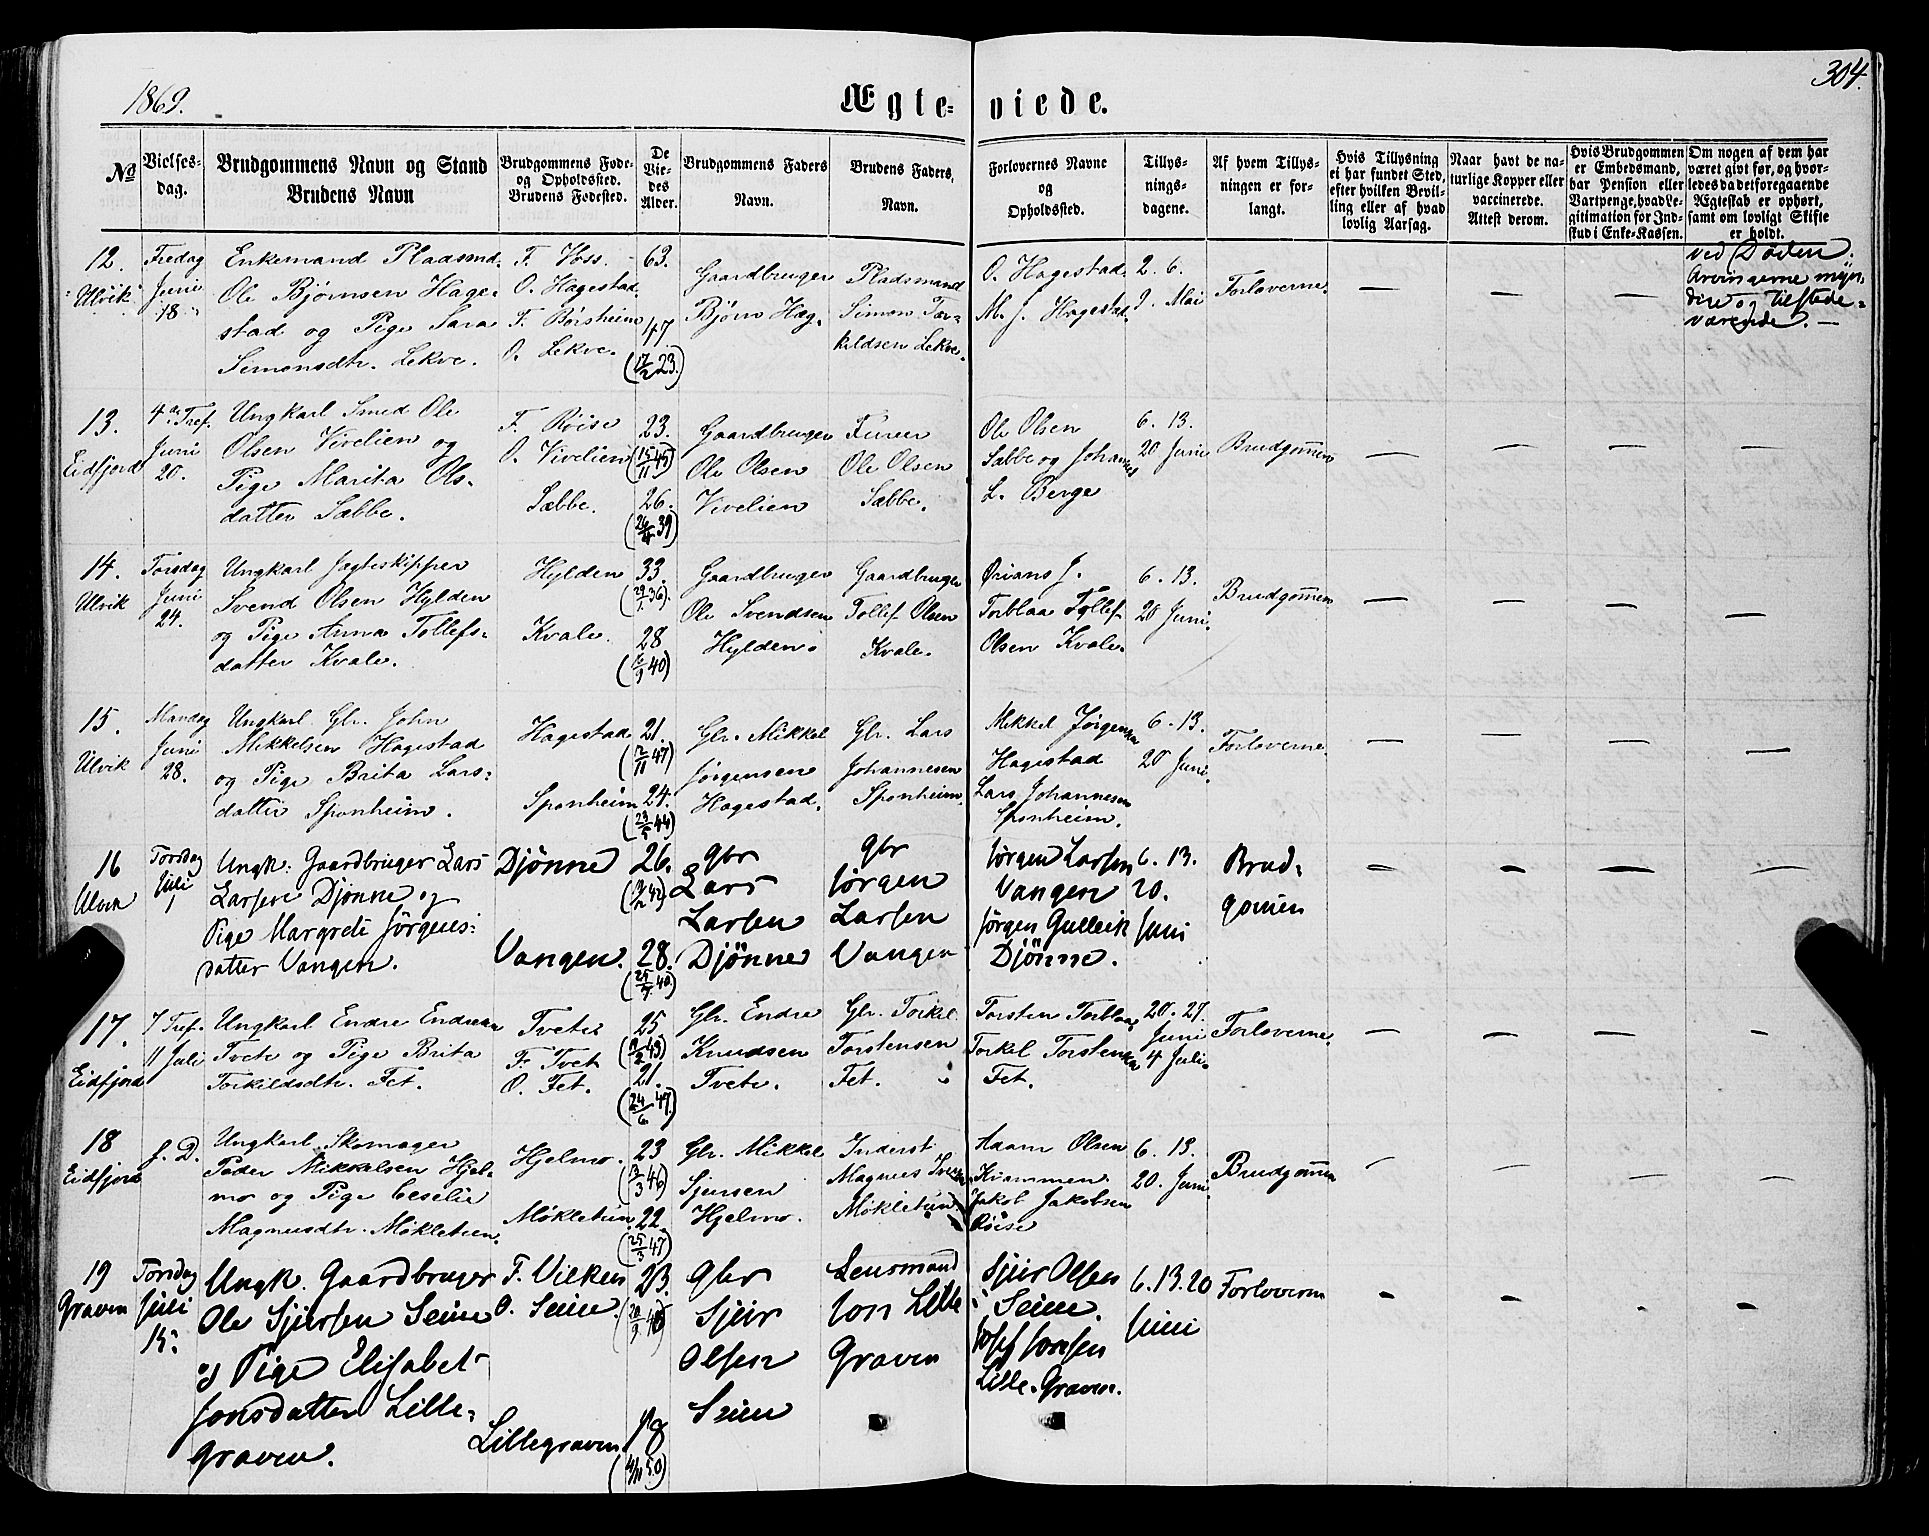 1869.
Ægte-viede.
304.
No
Vielses-dag.
Brudgommens Navn og Stand
Brudens Navn
Brudgommens Føde-
og Opholdssted.
Brudens Fødested.
De
Vie-
des
Alder.
Brudgommens Faders
Navn.
Brudens Faders,
Navn.
Forlovernes Navne
og
Opholdssted.
Tillys-
nings-
dagene.
Af hvem Tillys-
ningen er for-
langt.
Hvis Tillysning
ei har fundet Sted,
efter hvilken Bevil-
ling eller af hvad
lovlig Aarsag.
Naar havt de na-
turlige Kopper eller
vaccinerede.
Attest derom.
Hvis Brudgommen
er Embedsmand,
har Pension eller
Vartpenge, hvad Le-
gitimation for Ind-
skud i Enke-Kassen.
Om nogen af dem har
været givt før, og hvor-
ledes da det foregaaende
Ægteskab er ophørt,
samt om lovligt Skifte
er holdt.
12.
Ulvik
Fredag
Juni
18.
Enkemand Pladsmd.
Ole Bjørnsen Hage-
stad og Pige Sara
Simonsdtr. Lekve.
F. Voss.
O. Hagestad.
F. Børsheim
O. Lekve.
63.
47.
(17/2 23.)
Gaardbruger
Bjørn Hag.
Pladsmand
Simon Tor-
kildsen Lekve.
O. Hagestad.
M. J. Hagestad.
2. 6.
9. Mai
Forloverne.
ved Døden.
Arvingerne myn-
dige og tilstede-
værende.
13.
Eidfjord
4de Tref.
Juni
20.
Ungkarl Smed Ole
Olsen Vivelien og
Pige Marita Ols-
datter Sæbbe.
F. Røise
O. Vivelien
Sæbbe.
23.
(15/11 45)
26.
Gaardbruger
Ole Olsen
Vivelien
Ole Olsen
Sæbbe.
Ole Olsen
Sæbbe og Johannes
L. Berge
6. 13.
20 Juni
Brudgommen
14.
Ulvik
Torsdag
Juni
24.
Ungkarl Jægteskipper
Svend Olsen Hylden
og Pige Anna Tollefs-
datter Kvale.
Hylden
Kvale.
33.
(29/1. 36).
28
Gaardbruger
Ole Svendsen
Hylden.
Gaardbruger
Tollef Olsen
Kvale.
Ørians J.
Torblaa Tollef
Olsen Kvale.
6. 13.
20 Juni.
Brudgommen
15.
Ulvik
Mandag
Juni
28.
Ungkarl Gbr. John
Mikkelsen Hagestad
og Pige Brita Lars-
datter Sponheim.
Hagestad
Sponheim
21.
(12/11 47)
24.
(29/5 44)
Gbr. Mikkel
Jørgensen
Hagestad.
Gbr. Lars
Johannesen
Sponheim.
Mikkel Jørgensen
Hagestad
Lars Johannesen
Sponheim.
6. 13.
20 Juni.
Forloverne.
16
Ulven
Torsdag
Juli
1
Ungk: Gaardbruger Lars
Larsen Djønne og
Pige Margrete Jørgens-
datter Vangen.
Djønne
Vangen.
26.
28.
Gbr
Lars
Larsen
Djönne
Gbr
Jørgen
Larsen
Vangen
Jørgen Larsen
Vangen
Jørgen Gulleik
Djönne.
6. 13.
20.
Juni
Brud-
gomen
17.
Eidfjord
7 Tref.
11 Juli
Ungkarl Endre Endresen
Tveite og Pige Brita
Torkildsdtr. Fet.
Tveite
F. Tveit
O. Fet.
25
21.
(24/6 47.)
Gbr. Endre
Knudsen
Tveite.
Gbr. Torkel
Torstensen
Fet.
Torsten Torblaa
Torkel Torstensen
Fet.
20. 27.
Juni
4 Juli.
Forloverne.
18
Eidfjord
s. D.
Ungkarl Skomager
Peder Mikkelsen Hjel-
mo og Pige Ceselie
Magnusdtr. Møkletun.
Hjelmo.
Møkletun.
23
(13/3 46)
22.
(25/3 47)
Gbr. Mikkel
Sjursen
Hjelmo.
Inderst
Magnus Iversen
Møkletun.
Adam Olsen
Kvammen.
Jakob Jakobsen
Røise
6. 13.
20. Juni.
Brudgommen
19
Graven
Torsdag
Juli
15.
Ungk. Gaardbruger
Ole Sjursen Seim
og Pige Elisabet
Jonsdatter Lille-
graven.
F. Vilken
O. Seim.
Lillegraven
23.
18
Gbr
Sjur
Olsen
Seim
Lensmand
Jon Lille
Graven
Sjur Olsen
Seim.
Josef Jonsen
Lille-Graven.
6. 13. 20
Juni
Forloverne